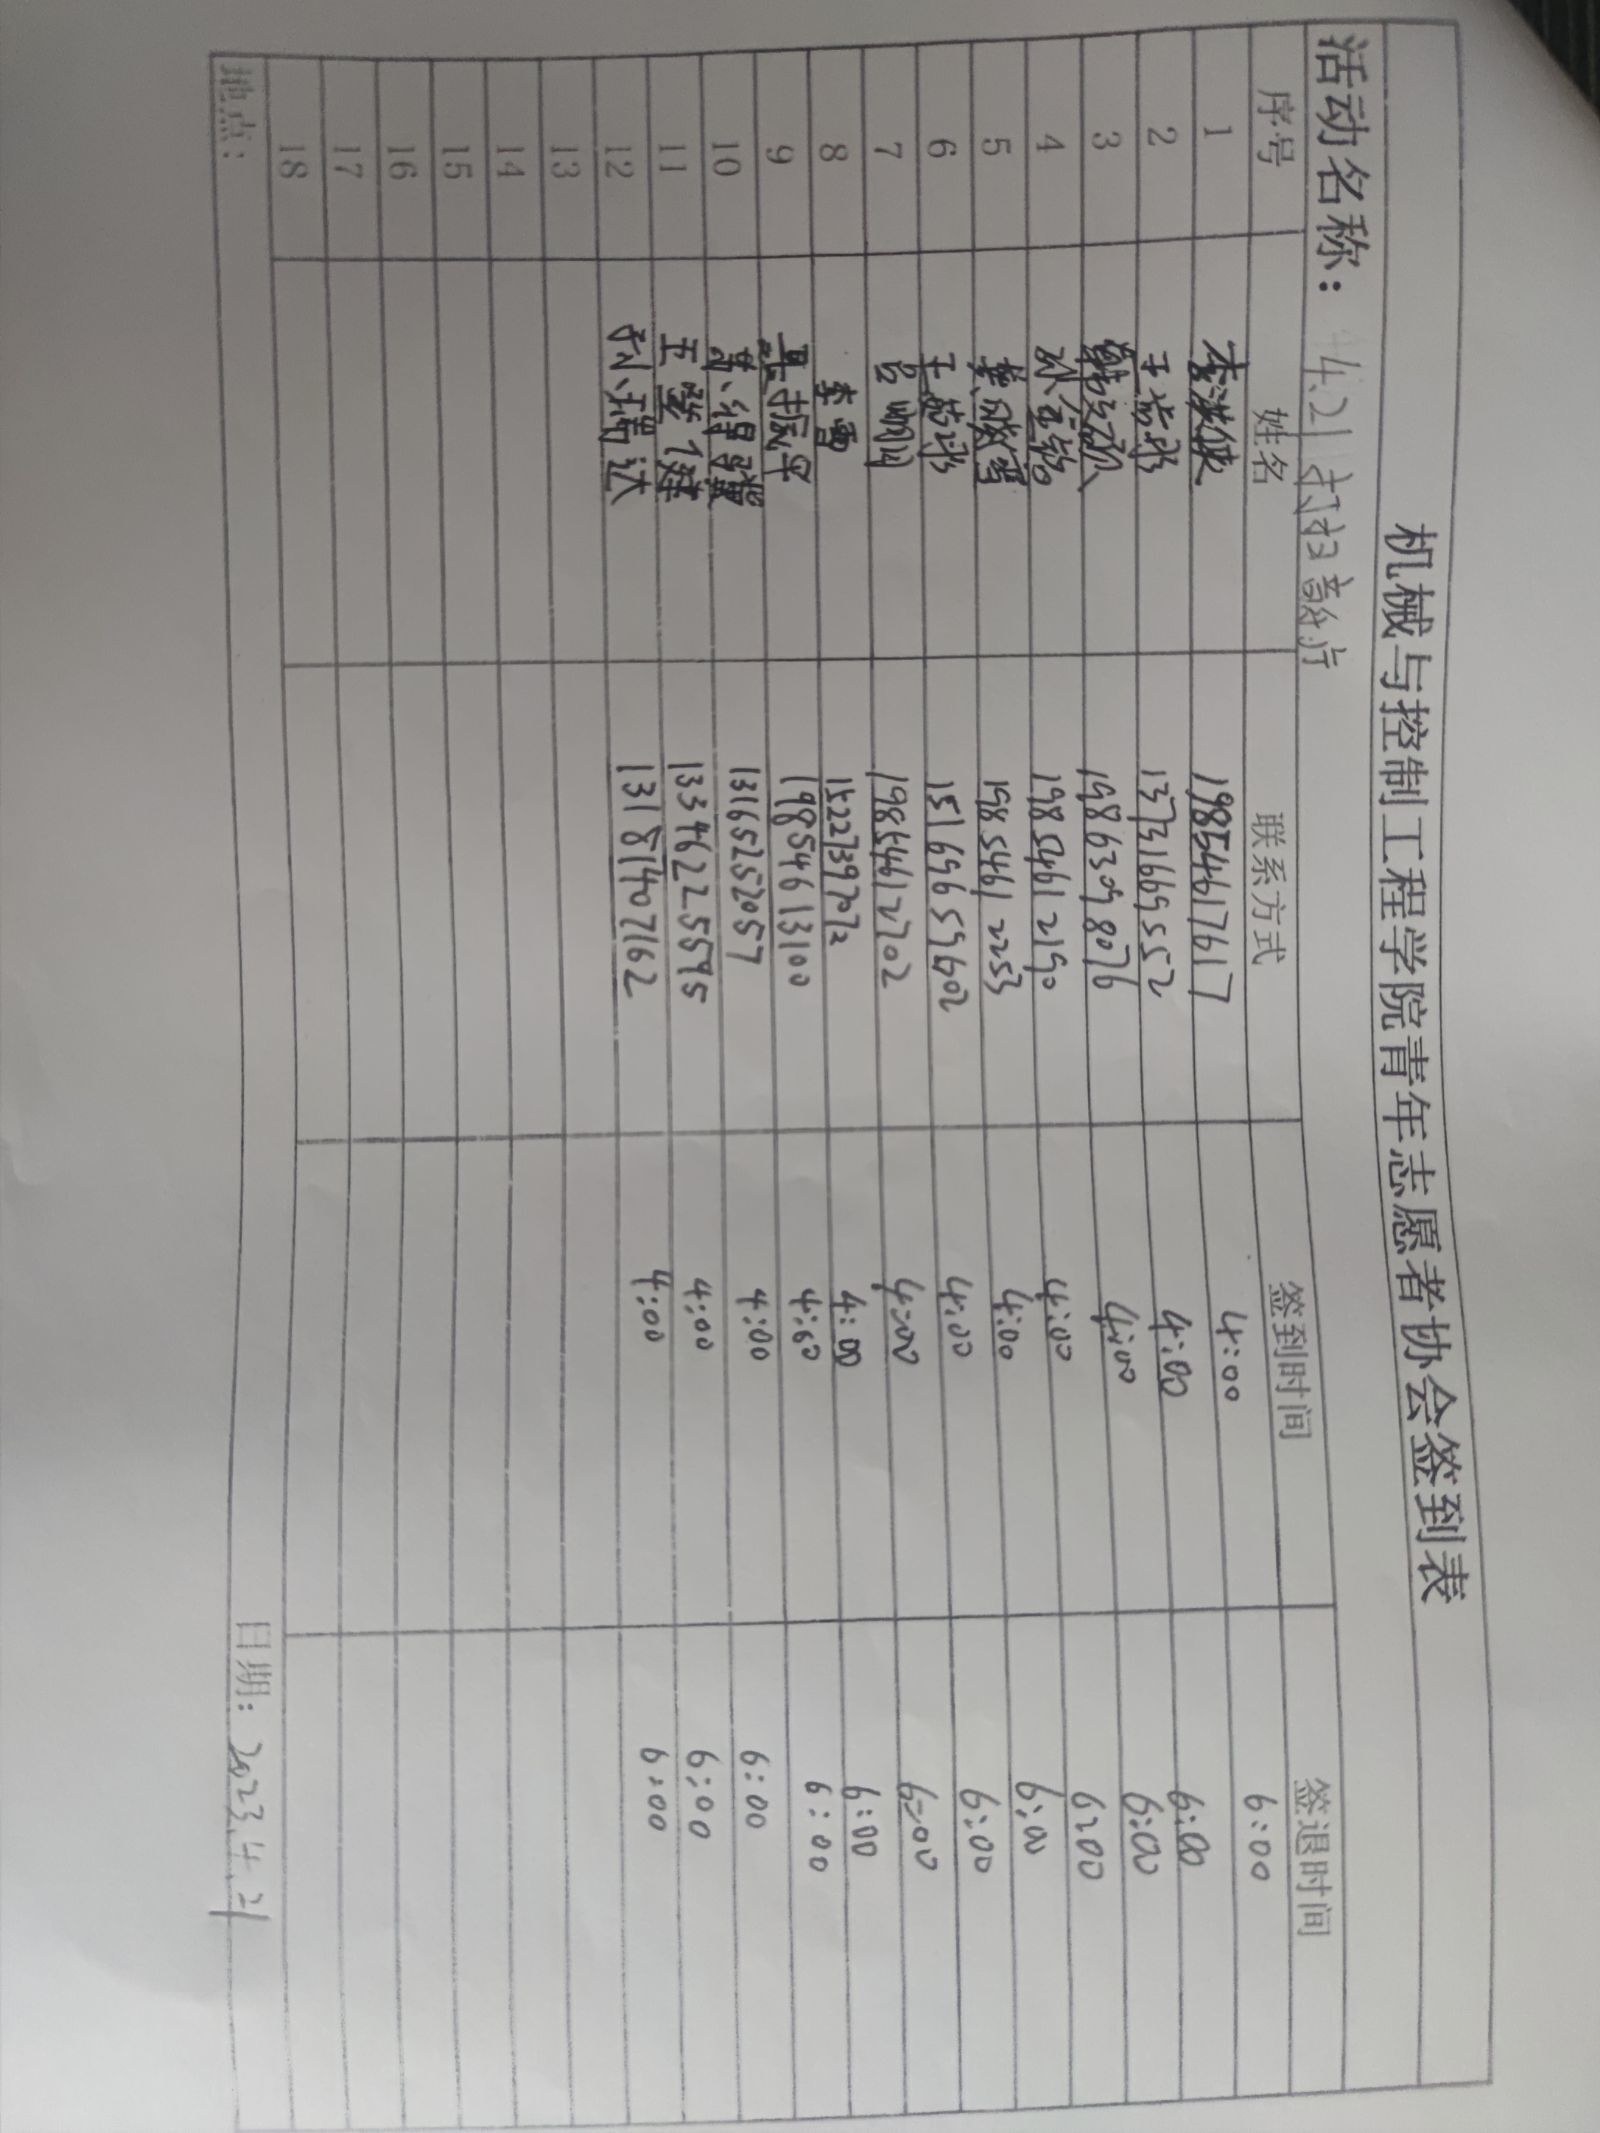 机械与控制工程学院青年志愿者协会签到表
活动名称: 4.21打扫音乐厅
序号 姓名 联系方式 签到时间 签退时间
1 李洪侠 19854617617 4:00 6:00
2 13731669552 4:00 6:00
3 19863098076 4:00 6:00
4 19854612190 4:00 6:00
5 19854612253 4:00 6:00
6 15169659602 4:00 6:00
7 吕明阳 19854612702 4:00 6:00
8 李雷 15222397072 4:00 6:00
9 19854613100 4:00 6:00
10 13165252057 4:00 6:00
11 13346225595 4:00 6:00
12 孙瑞达 13181407162 4:00 6:00
13
14
15
16
17
18
地点: 日期: 2023.4.21